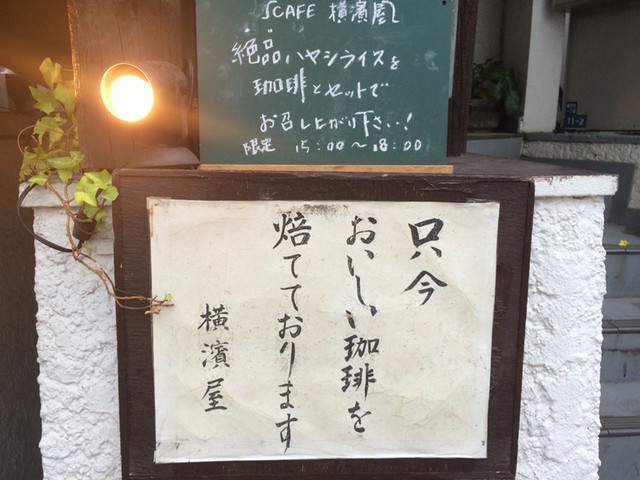 CAFE 横濱屋
絶品ハヤシライスを
珈琲とセットで
お召し上がり下さい!
限定 15:00〜18:00
只今
おいしい珈琲を
焙てております
横濱屋
11-2